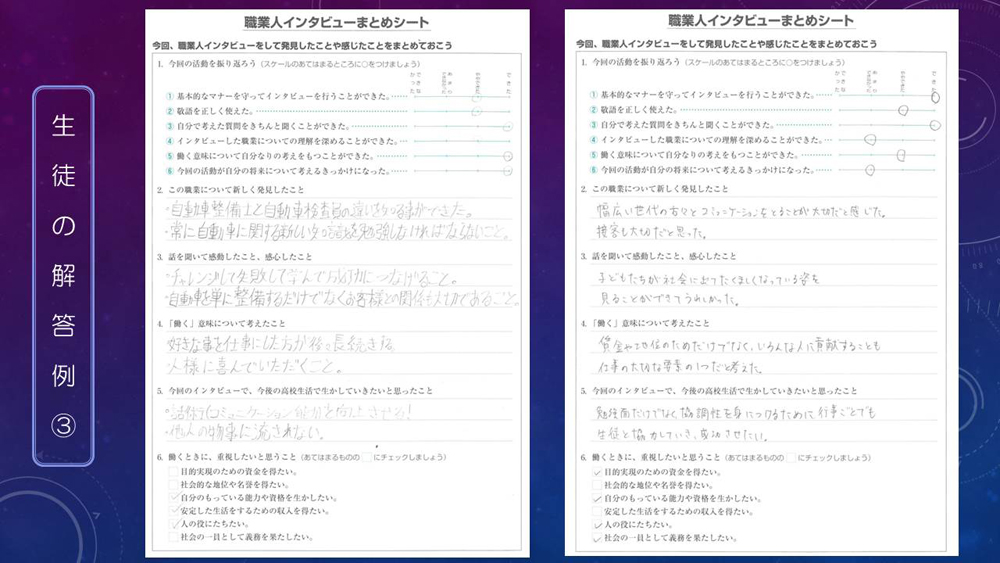 生徒の解答例③
職業人インタビューまとめシート
今回、職業人インタビューをして発見したことや感じたことをまとめておこう
1. 今回の活動を振り返ろう（スケールのあてはまるところに○をつけましょう）
① 基本的なマナーを守ってインタビューを行うことができた。
② 敬語を正しく使えた。
③ 自分で考えた質問をきちんと聞くことができた。
④ インタビューした職業についての理解を深めることができた。
⑤ 働く意味について自分なりの考えをもつことができた。
⑥ 今回の活動が自分の将来について考えるきっかけになった。
2. この職業について新しく発見したこと
・自動車整備士と自動車検査員の違いを知る事ができた。
・常に自動車に関する新しい を勉強しなければならないこと。
3. 話を聞いて感動したこと、感心したこと
・チャレンジして失敗して学んで成功につなげること。
・自動車を単に整備するだけでなくお客様との関係も大切であること。
4. 「働く」意味について考えたこと
好きな事を仕事にした方が 長続きする
人様に喜んでいただくこと。
5. 今回のインタビューで、今後の高校生活で生かしていきたいと思ったこと
コミュニケーション能力を向上させる！
・他人の物事に流されない。
6. 働くときに、重視したいと思うこと（あてはまるものの□にチェックしましょう）
□目的実現のための資金を得たい。
□社会的な地位や名誉を得たい。
✓自分のもっている能力や資格を生かしたい。
✓安定した生活をするための収入を得たい。
✓人の役にたちたい。
□社会の一員として義務を果たしたい。
職業人インタビューまとめシート
今回、職業人インタビューをして発見したことや感じたことをまとめておこう
1. 今回の活動を振り返ろう（スケールのあてはまるところに○をつけましょう）
① 基本的なマナーを守ってインタビューを行うことができた。
② 敬語を正しく使えた。
③ 自分で考えた質問をきちんと聞くことができた。
④ インタビューした職業についての理解を深めることができた。
⑤ 働く意味について自分なりの考えをもつことができた。
⑥ 今回の活動が自分の将来について考えるきっかけになった。
2. この職業について新しく発見したこと
幅広い世代の方々とコミュニケーションをとることが大切だと感じた。
接客も大切だと思った。
3. 話を聞いて感動したこと、感心したこと
子どもたちが社会に出てたくましくなっている姿を
見ることができてうれしかった。
4. 「働く」意味について考えたこと
賃金や地位のためだけでなく、いろんな人に貢献することも
仕事の大切な要素の1つだと考えた。
5. 今回のインタビューで、今後の高校生活で生かしていきたいと思ったこと
勉強面だけでなく協調性を身につけるために、行事ごとでも
生徒と協力していき、成功させたい。
6. 働くときに、重視したいと思うこと（あてはまるものの□にチェックしましょう）
✓目的実現のための資金を得たい。
□社会的な地位や名誉を得たい。
✓自分のもっている能力や資格を生かしたい。
□安定した生活をするための収入を得たい。
✓人の役にたちたい。
✓社会の一員として義務を果たしたい。